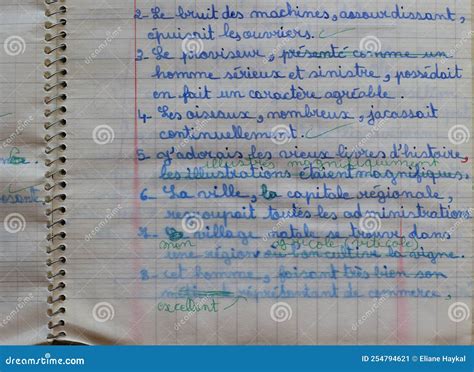 2. Le bruit des machines, assourdissant,
épuisait les ouvriers.
3. Le proviseur, présenté comme un
homme sérieux et sinistre, possédait
en fait un caractère agréable.
4. Les oiseaux, nombreux, jacassait
continuellement.
5. J'adorais les vieux livres d'histoire,
illustrés magnifiquement
les illustrations étaient magnifiques.
6. La ville, la capitale régionale,
regroupait toutes les administrations
7. village natale se trouve dans
mon agricole (viticole)
une région où l'on cultive la vigne.
8. Cet homme, faisant très bien son
représentant de commerce,
excellent
dreamstime
dreamstime.com
ID 254794621 © Eliane Haykal